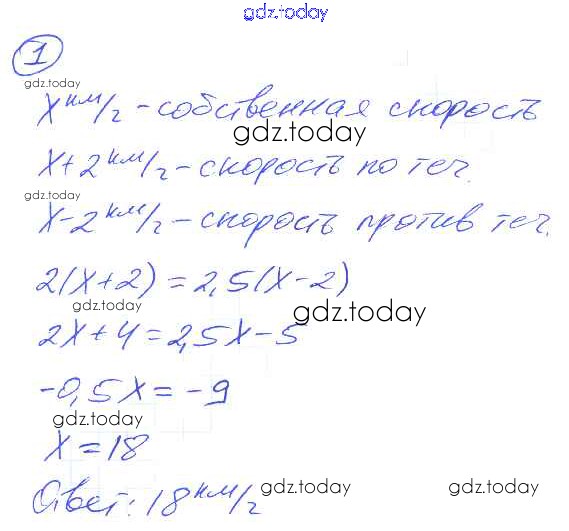 gdz.today
1
gdz.today
x км/г - собственная скорость
gdz.today
x+2 км/г - скорость по теч.
gdz.today
x-2 км/г - скорость против теч.
2(x+2) = 2,5(x-2)
gdz.today
gdz.today
2x+4 = 2,5x-5
-0,5x = -9
gdz.today
x = 18
Ответ: 18 км/г
gdz.today
gdz.today